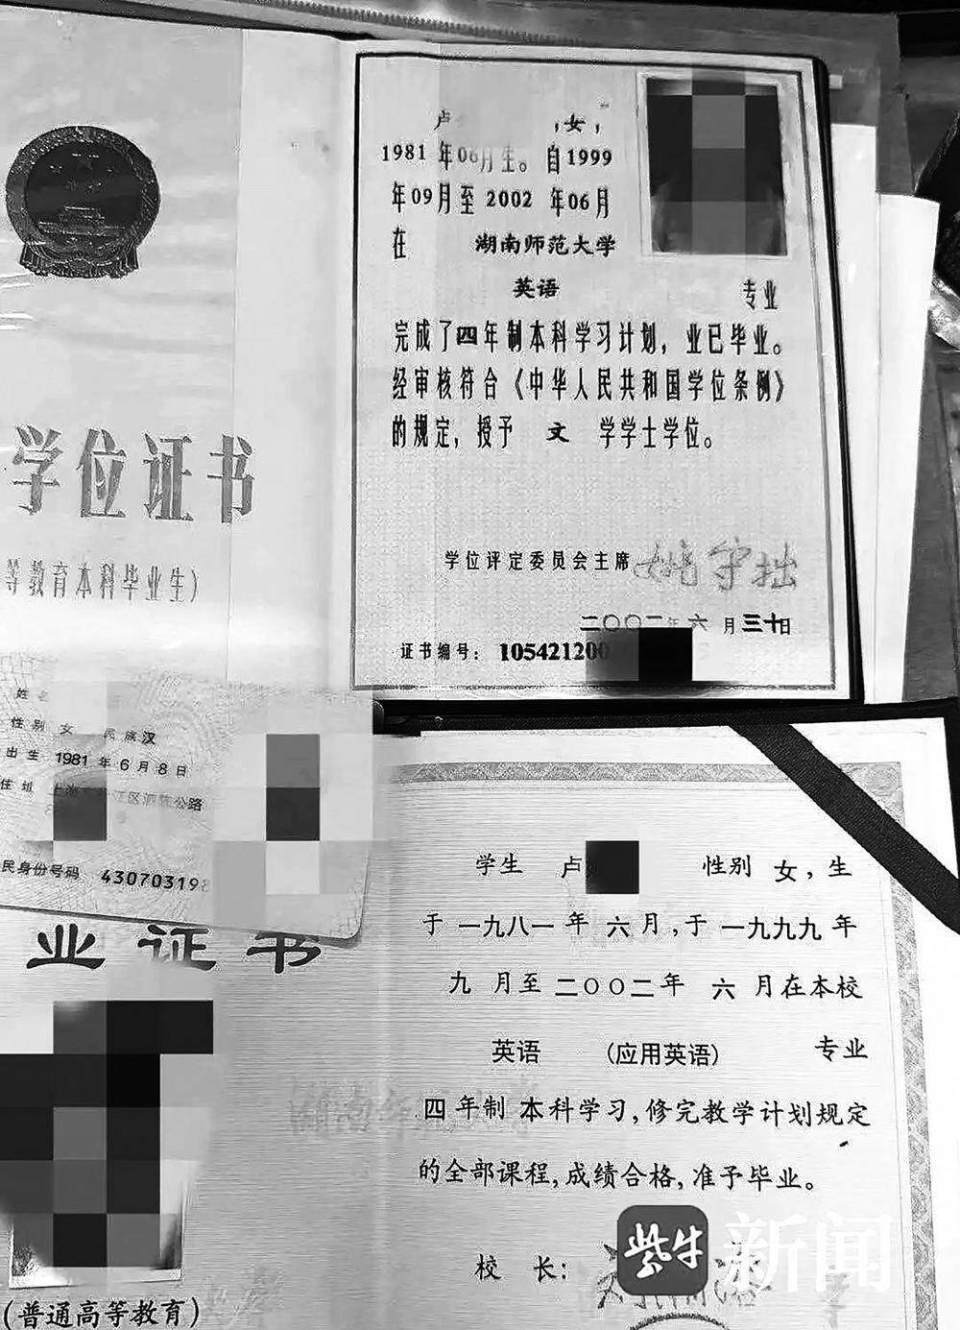 卢 ,女,
1981 年06月生。自1999
年09月至 2002 年06月
在 湖南师范大学
英语 专业
完成了四年制本科学习计划，业已毕业。
经审核符合《中华人民共和国学位条例》
的规定，授予 文 学学士学位。
学位评定委员会主席 姚守拙
二〇〇二年 六 月 三十日
证书编号： 105421200
学位证书
等教育本科毕业生）
姓名
性别 女 民族 汉
出生 1981 年 6 月 8 日
住址 上 江区泗陈公路
民身份号码 430703198
业证书
（普通高等教育）
学生 卢 性别 女，生
于 一九八一 年 六 月，于 一九九九 年
九 月至 二〇〇二 年 六 月在本校
英语 （应用英语） 专业
四 年制 本科学习，修完教学计划规定
的全部课程，成绩合格，准予毕业。
校 长：
紫牛 新闻